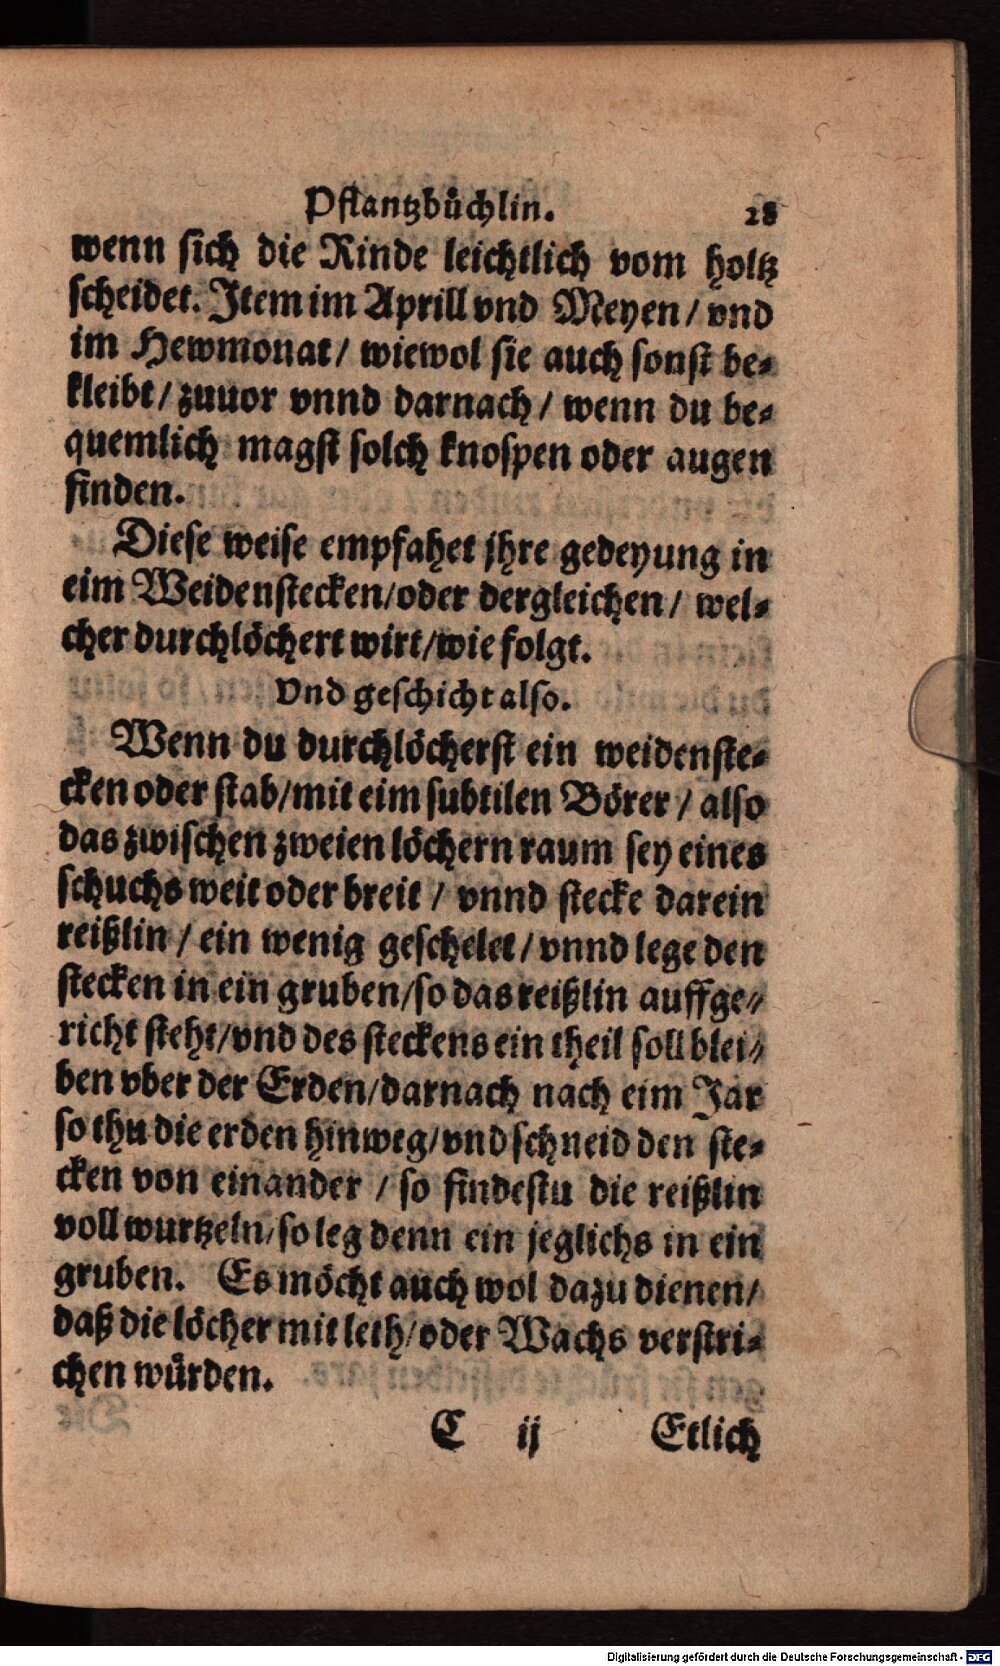 Pflantzbüchlin. 28
wenn sich die Rinde leichtlich vom holtz
scheidet. Item im Aprill vnd Meyen/ vnd
im Hewmonat/ wiewol sie auch sonst be-
kleibt/ zuuor vnnd darnach/ wenn du be-
quemlich magst solch knospen oder augen
finden.
Diese weise empfahet jhre gedeyung in
eim Weidenstecken/oder dergleichen/ wel-
cher durchlöchert wirt/wie folgt.
Vnd geschicht also.
Wenn du durchlöcherst ein weidenste-
cken oder stab/mit eim subtilen Börer/ also
das zwischen zweien löchern raum sey eines
schuchs weit oder breit/ vnnd stecke darein
reißlin/ ein wenig geschelet/ vnnd lege den
stecken in ein gruben/so das reißlin auffge-
richt steht/vnd des steckens ein theil soll blei-
ben vber der Erden/darnach nach eim Jar
so thu die erden hinweg/vnd schneid den ste-
cken von einander/ so findestu die reißlin
voll wurtzeln/so leg denn ein jeglichs in ein
gruben. Es möcht auch wol dazu dienen/
daß die löcher mit leth/oder Wachs verstri-
chen würden.
C ij Etlich
Digitalisierung gefördert durch die Deutsche Forschungsgemeinschaft - DFG